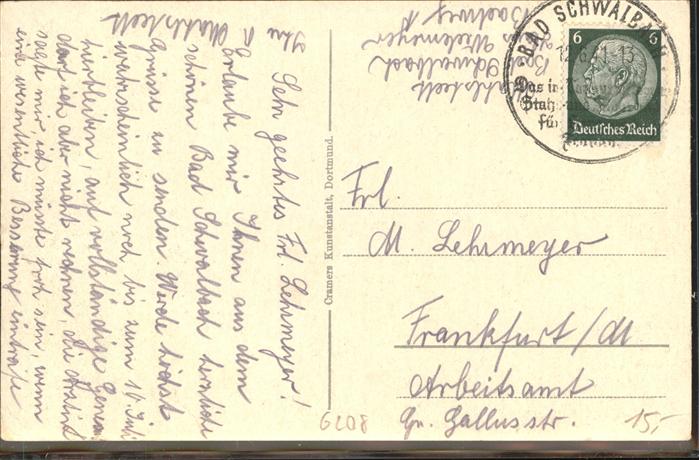 Sehr geehrtes Frl. Lehrmeyer!
Erlaube mir Ihnen aus dem
schönen Bad Schwalbach herzliche
Grüsse zu senden. Werde höchst
wahrscheinlich noch bis zum 10. Juli
hierbleiben, auf vollständige
darf ich aber nicht rechnen, die
sagte mir, ich müsste froh sein, wenn
eine wesentliche Besserung einträfe
Ihr
Schwalbach
Cramers Kunstanstalt, Dortmund.
BAD SCHWALBACH
6 6
Deutsches Reich
Frl.
M. Lehrmeyer
Frankfurt/M
Arbeitsamt
Gr. Gallusstr.
6208
15,-